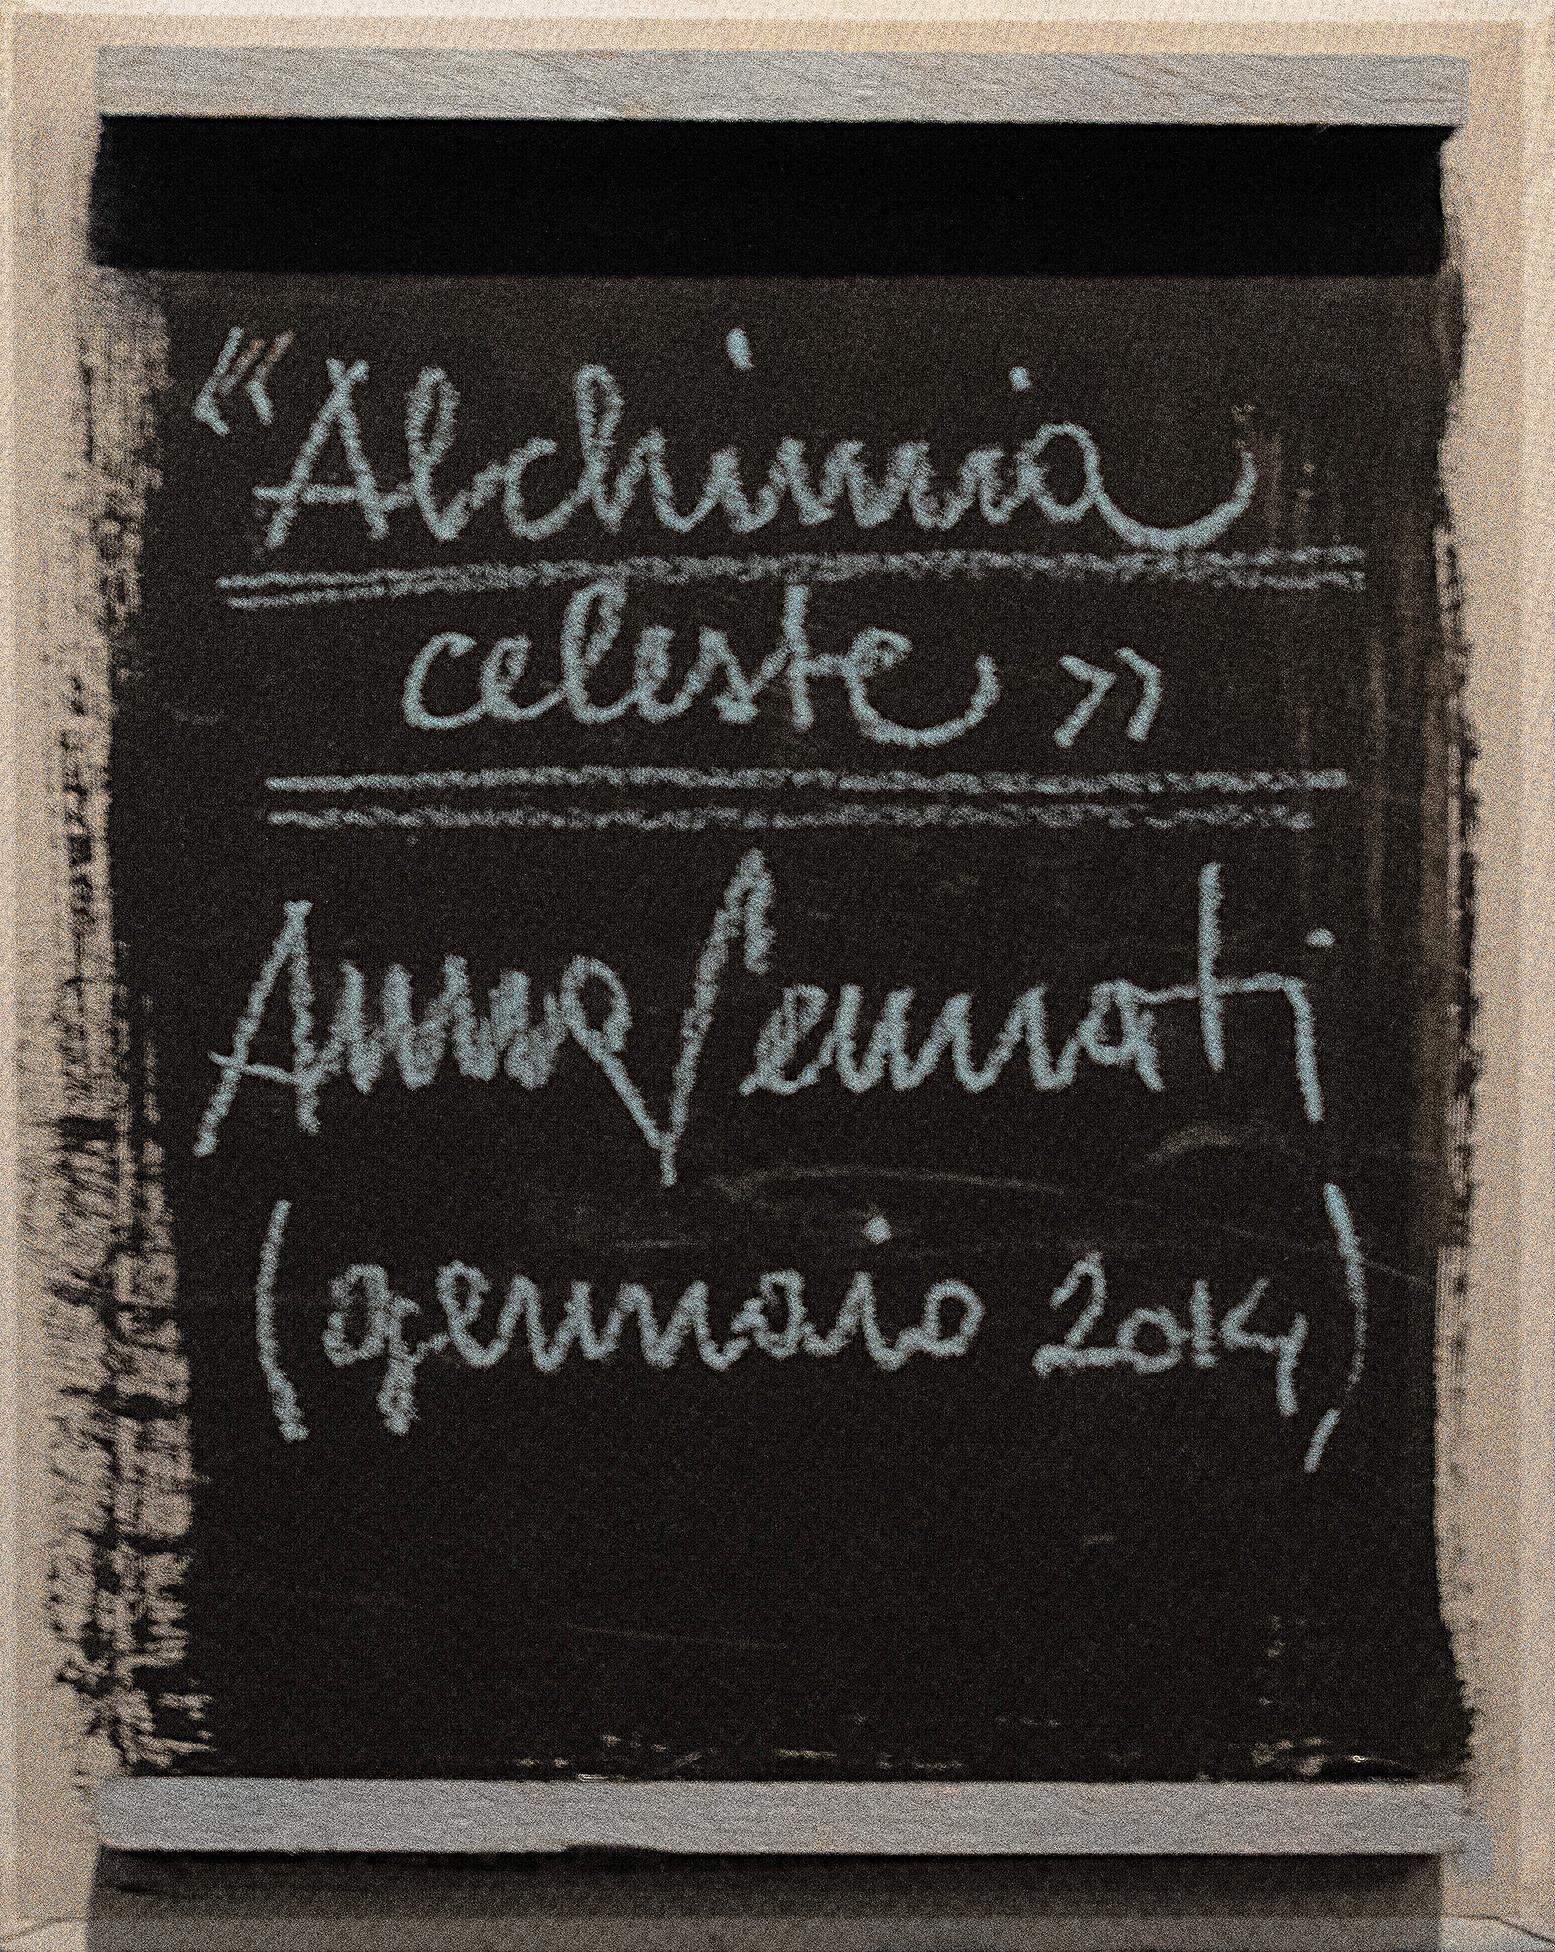 «Alchimia
celeste»
Anna Sennati
(gennaio 2014)